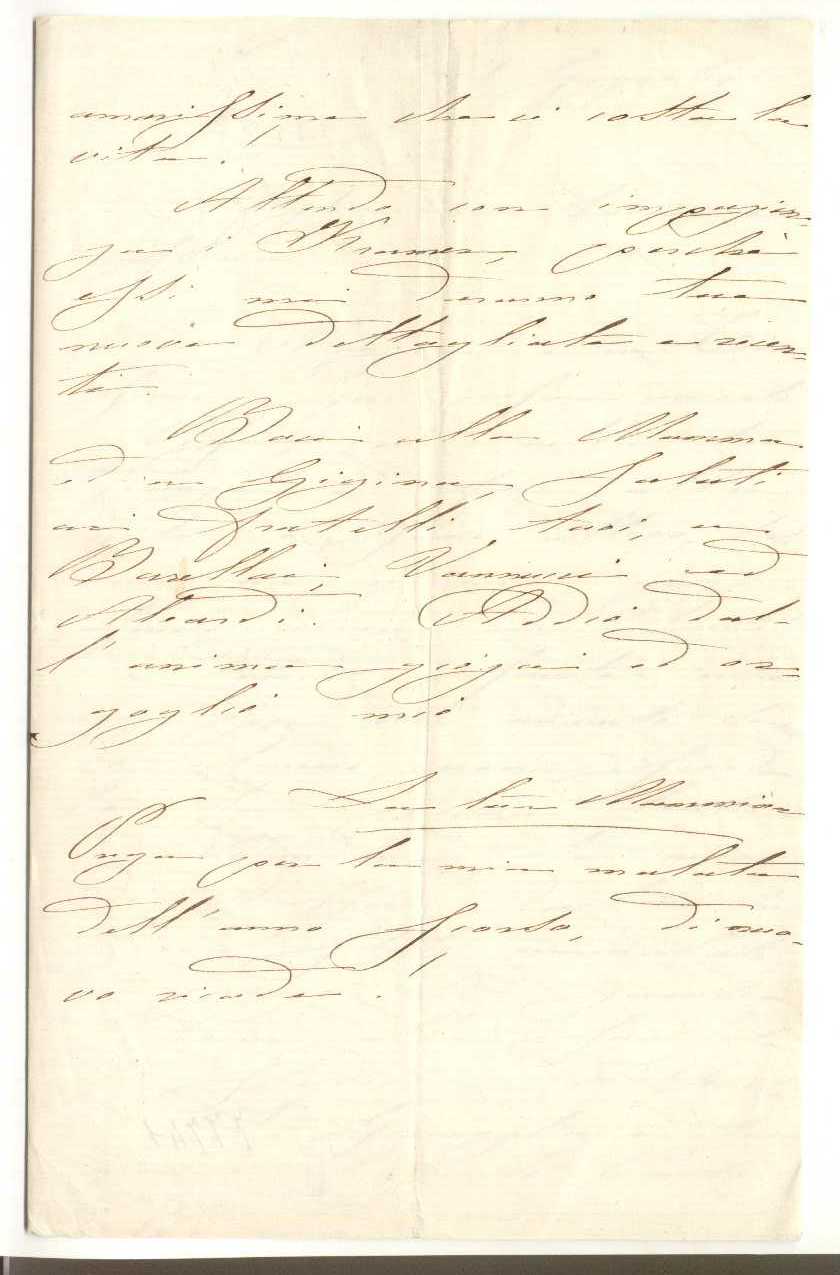 amarissima che ci costa la
vita!
Attendo con impazien-
za i Kramer, perchè
essi mi daranno tue
nuove dettagliate e recen-
ti.
Baci alla Mamma
ed a Gigina, Saluti
ai fratelli tuoi, a
Barellai, Vannucci ed
Aleardi. Addio dal-
l'anima gioja ed or-
goglio mio
La tua Mammina
Prega per la mia malata
dell'anno scorso, di nuo-
vo ricade.